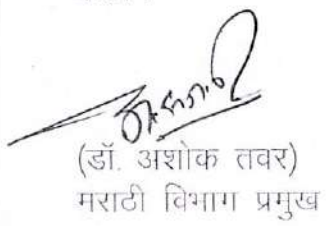 (डॉ. अशोक तवर)
मराठी विभाग प्रमुख